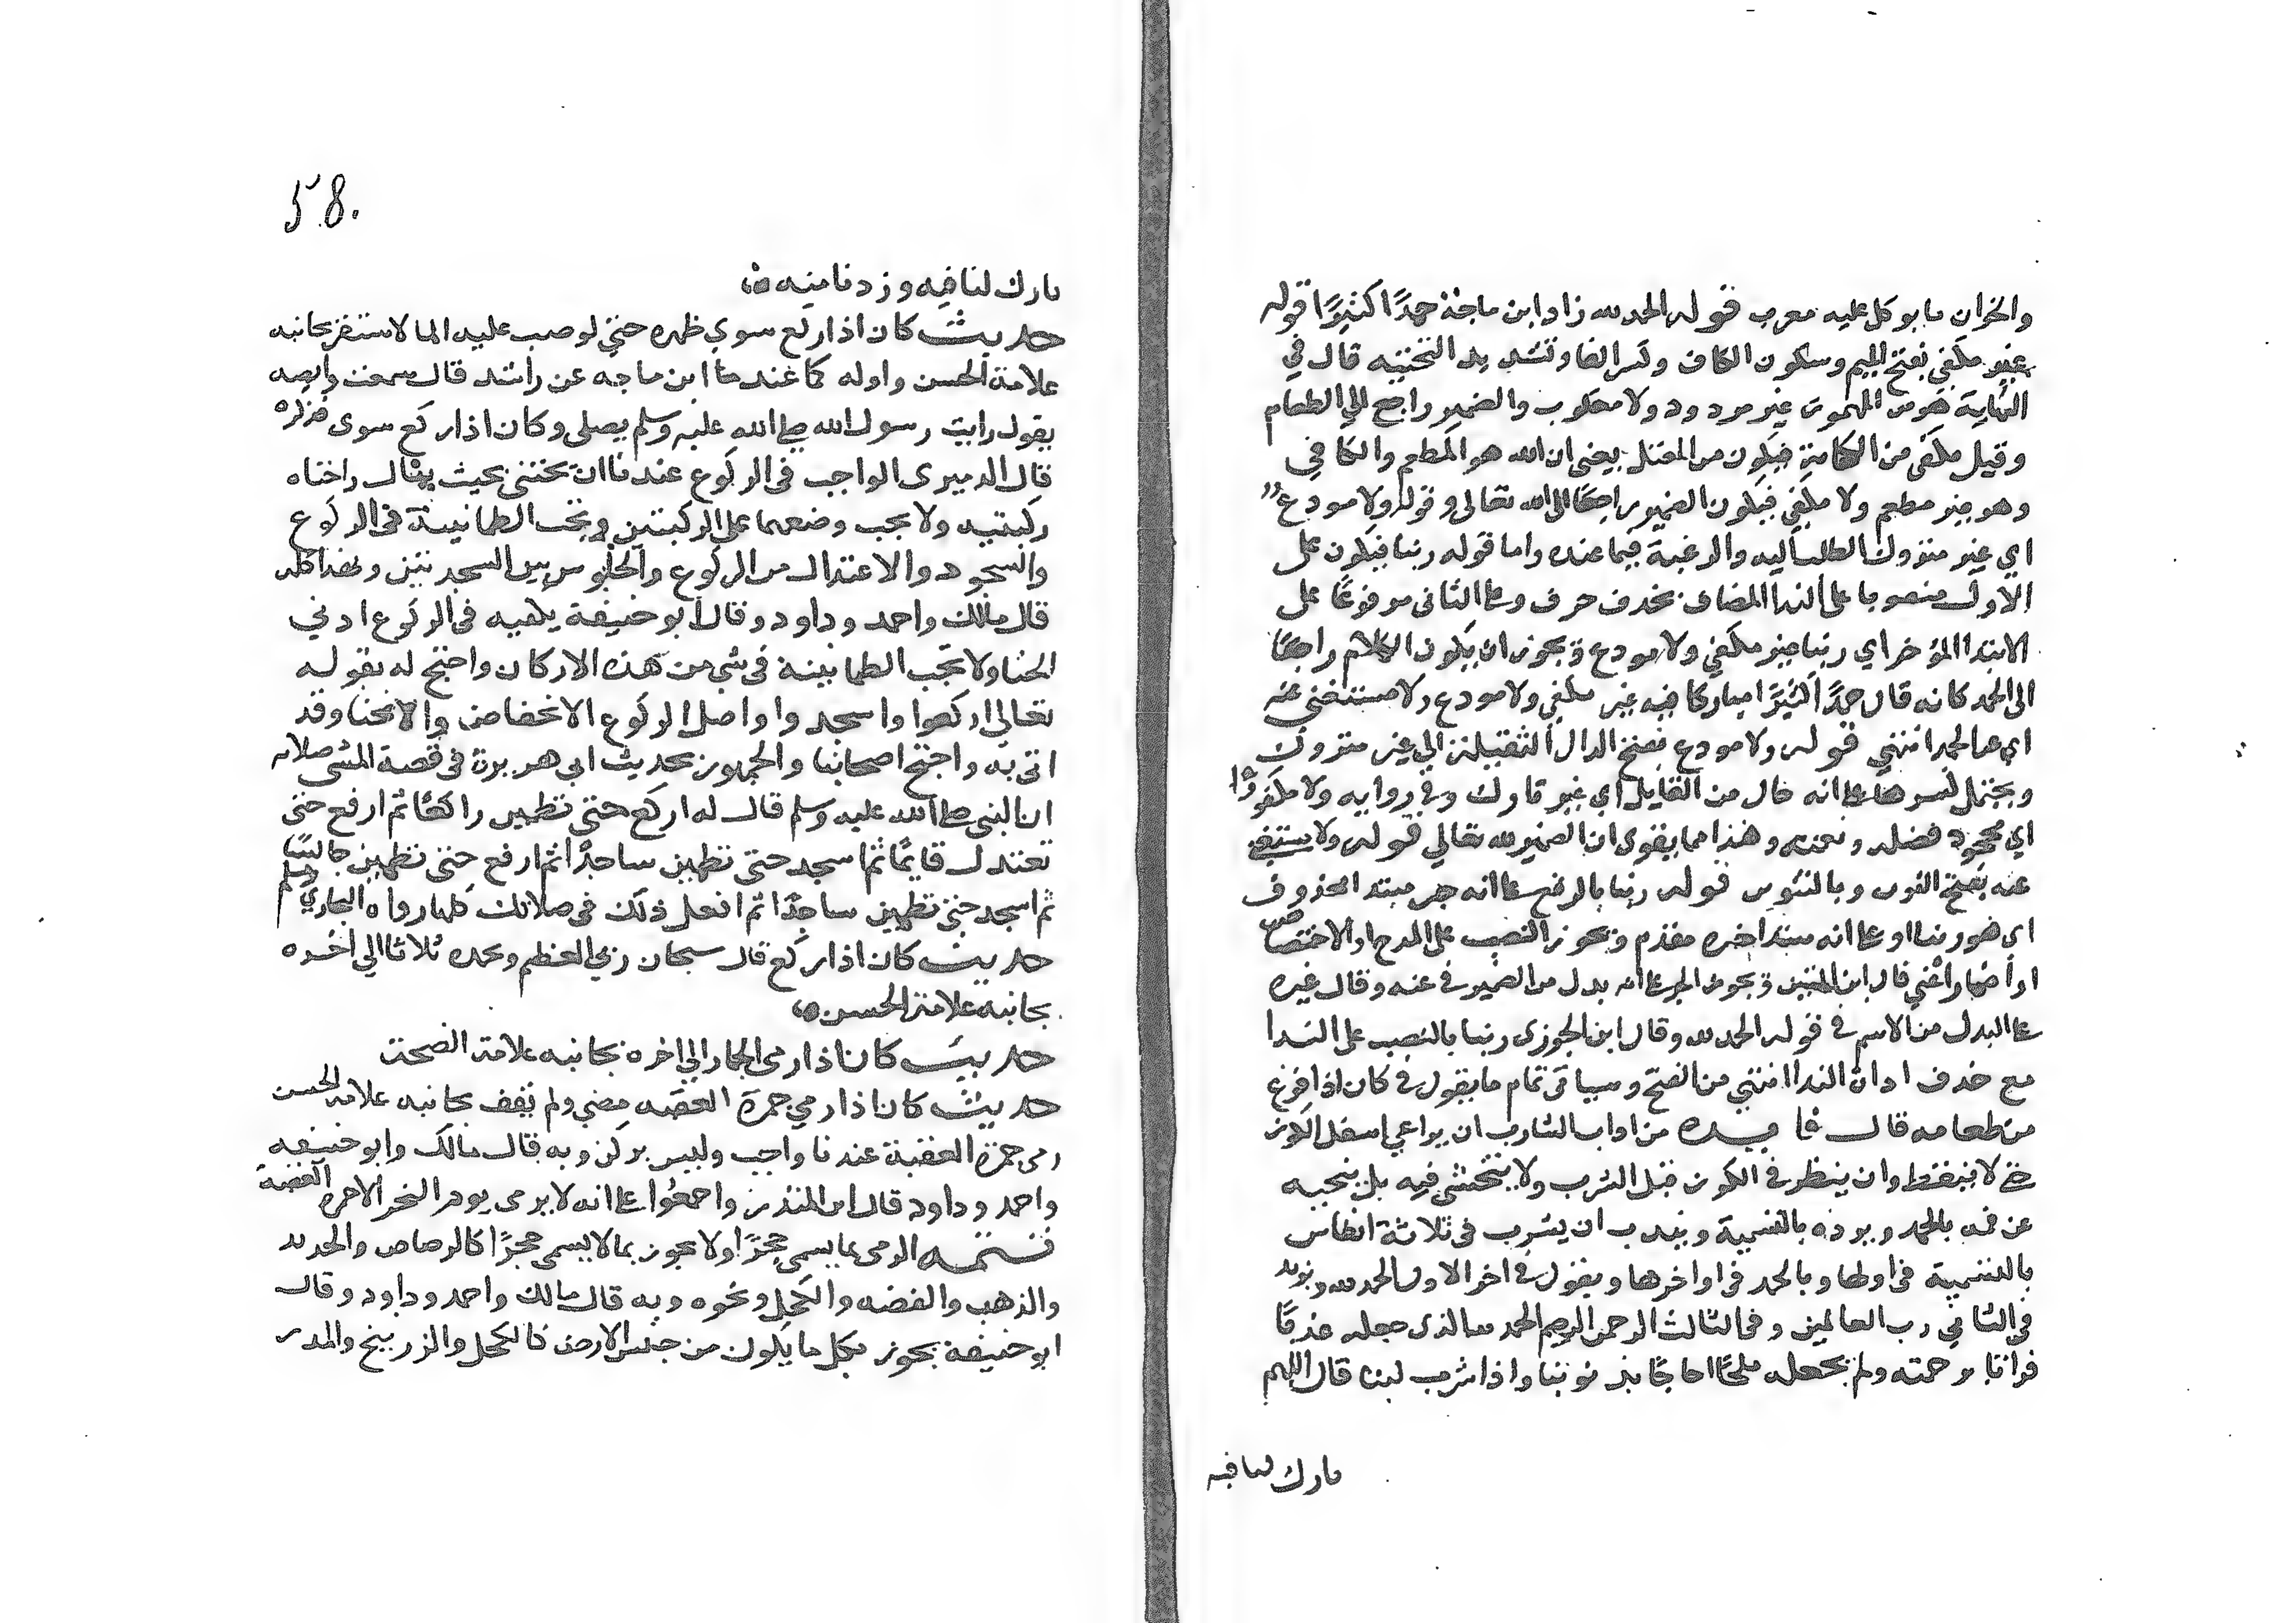 والخوان ما يوكل عليه معرب قوله الحمد لله زاد ابن ماجة حمدًا كثيرًا قوله
غير مكفي بفتح الميم وسكون الكاف وكسر الفا وتشديد التحتيه قال في
النهاية هو من المهموز غير مردود ولا مقلوب والضمير راجع الي الطعام
وقيل مكفى من الكفاية فيكون من المعتل يعني ان الله هو المطعم والكافي
وهو غير مطعم ولا مكفي فيكون الضمير راجعًا الى الله تعالى وقوله ولا مودع
اي غير متروك الطلب اليه والرغبة فيما عنده واما قوله ربنا فيكون على
الاول منصوبا على الندا المضاف بحذف حرف وعلى الثانى مرفوعًا على
الابتدا المؤخر اي ربنا غير مكفي ولا مودع ويجوز ان يكون الكلام راجعًا
الى الحمد كانه قال حمدًا كثيرًا مباركا فيه غير مكفي ولا مودع ولا مستغنى عنه
اي عن الحمد انتهي قوله ولا مودع بفتح الدال الثقيلة اي غير متروك
ويحتمل كسرها على انه حال من القايل اي غير تارك وفي روايه ولا مكفورًا
اي مجحود فضله ونعمته وهذا مما يقوى ان الضمير لله تعالي قوله ولا مستغنى
عنه بفتح النون وبالتنوين قوله ربنا بالرفع على انه خبر مبتدا محذوف
اى هو ربنا او على انه مبتدا خبره مقدم ويجوز النصب على المدح او الاختصاص
او اضمار اعني قال ابن التين ويجوز الجر على انه بدل من الضمير في عنه وقال غيره
على البدل من الاسم في قوله الحمد لله وقال ابن الجوزى ربنا بالنصب على الندا
مع حذف اداة الندا انتهي من الفتح وسياتى تمام ما يقول في كان اذا فرغ
من طعامه قال فايده من اداب الشارب ان يراعي اسفل الكوز
حتى لا ينقط وان ينظر في الكوز قبل الشرب ولا يتجشى فيه بل ينحيه
عن فمه بالحمد ويرده بالتسمية ويندب ان يشرب فى ثلاثة انفاس
بالتسمية في اولها وبالحمد فى اواخرها ويقول في اخر الاول الحمد لله ويزيد
في الثاني رب العالمين وفى الثالث الرحمن الرحيم الحمد لله الذى جعله عذبًا
فراتا برحمته ولم يجعله ملحًا اجاجًا بذنوبنا واذا شرب لبنا قال اللهم
بارك لنا فيه
58.
بارك لنا فيه وزدنا منه
حديث كان اذا ركع سوي ظهره حتي لو صب عليه الما لاستقر بجانبه
علامة الحسن واوله كما عند ابن ماجه عن راشد قال سمعت وابصه
يقول رايت رسول الله صلى الله عليه وسلم يصلى وكان اذا ركع سوى فذكره
قال الدميرى الواجب فى الركوع عندنا ان ينحني بحيث ينال راحتاه
ركبتيه ولا يجب وضعهما على الركبتين وتجب الطمانينة فى الركوع
والسجود والاعتدال من الركوع والجلوس بين السجدتين وبهذا كله
قال مالك واحمد وداود وقال ابو حنيفة يكفيه فى الركوع ادني
انحنا ولا تجب الطمانينة فى شي من هذه الاركان واحتج له بقوله
تعالي اركعوا واسجدوا واصل الركوع الانخفاض والانحنا وقد
اتى به واحتج اصحابنا والجمهور بحديث ابي هريرة فى قصة المسي صلاته
ان النبي صلى الله عليه وسلم قال له اركع حتى تطمين راكعًا ثم ارفع حتى
تعتدل قايمًا ثم اسجد حتى تطمين ساجدًا ثم ارفع حتى تطمين جالسًا
ثم اسجد حتى تطمين ساجدًا ثم افعل ذلك في صلاتك كلها رواه البخاري ومسلم
حديث كان اذا ركع قال سبحان ربي العظيم وبحمده ثلاثا الي اخره
بجانبه علامة الحسن
حديث كان اذا رمى الجمار الي اخره بجانبه علامة الصحة
حديث كان اذا رمي جمرة العقبه مضي ولم يقف بجانبه علامة الحسن
رمى جمرة العقبة عندنا واجب وليس بركن وبه قال مالك وابو حنيفه
واحمد وداود قال ابن المنذر واجمعوا على انه لا يرمى يوم النحر الا جمرة العقبة
تتمه الرمى بما يسمى حجرًا ولا يجوز بما لا يسمى حجرًا كالرصاص والحديد
والذهب والفضه والكحل ونحوه وبه قال مالك واحمد وداود وقال
ابو حنيفة يجوز بكل ما يكون من جنس الارض كالكحل والزرنيخ والمدر